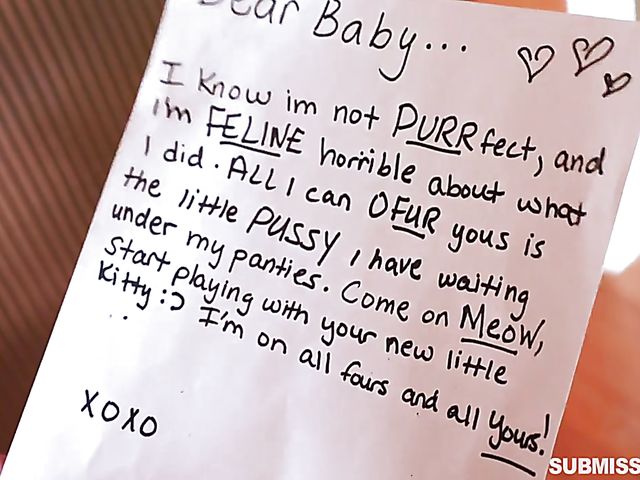 Dear Baby...
I Know im not PURRfect, and
im FELINE horrible about what
I did. ALL I can OFUR yous is
the little PUSSY I have waiting
under my panties. Come on MeOW,
start playing with your new little
Kitty :) I'm on all fours and all yours!
XOXO
SUBMISS